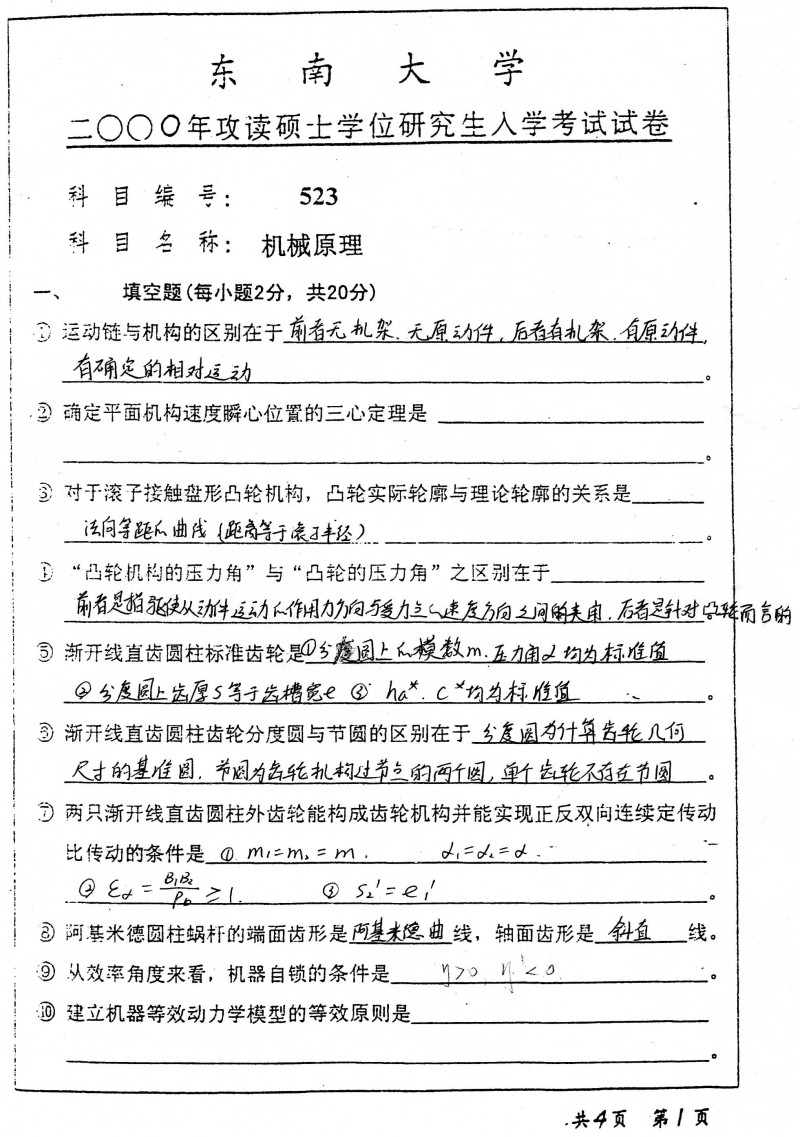 东南大学
二〇〇〇年攻读硕士学位研究生入学考试试卷
科目编号： 523
科目名称： 机械原理
一、 填空题(每小题2分，共20分)
① 运动链与机构的区别在于前者无机架．无原动件，后者有机架．有原动件，
有确定的相对运动。
② 确定平面机构速度瞬心位置的三心定理是
。
③ 对于滚子接触盘形凸轮机构，凸轮实际轮廓与理论轮廓的关系是
法向等距的曲线（距离等于滚子半径）。
④ “凸轮机构的压力角”与“凸轮的压力角”之区别在于
前者是指驱使从动件运动的作用力方向与受力点的速度方向之间的夹角．后者是针对凸轮而言的
⑤ 渐开线直齿圆柱标准齿轮是①分度圆上的模数m．压力角α均为标准值
②分度圆上齿厚s等于齿槽宽e ③ ha*．c*均为标准值。
⑥ 渐开线直齿圆柱齿轮分度圆与节圆的区别在于 分度圆为计算齿轮几何
尺寸的基准圆．节圆为齿轮机构过节点的两个圆，单个齿轮不存在节圆。
⑦ 两只渐开线直齿圆柱外齿轮能构成齿轮机构并能实现正反双向连续定传动
比传动的条件是 ① m₁=m₂=m． α₁=α₂=α．
② εα = B₁B₂/Pb ≥1． ③ s₂'=e₁'。
⑧ 阿基米德圆柱蜗杆的端面齿形是阿基米德曲线，轴面齿形是 斜直 线。
⑨ 从效率角度来看，机器自锁的条件是 η>0，η'<0。
⑩ 建立机器等效动力学模型的等效原则是
。
共4页 第1页